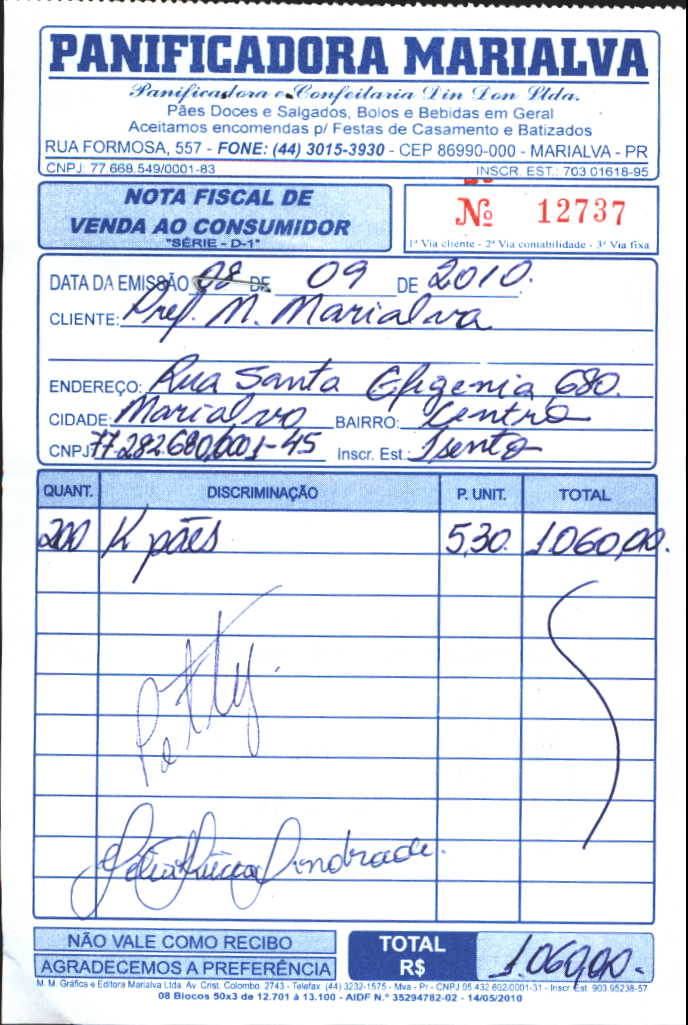 PANIFICADORA MARIALVA
Panificadora e Confeitaria Din Don Ltda.
Pães Doces e Salgados, Bolos e Bebidas em Geral
Aceitamos encomendas p/ Festas de Casamento e Batizados
RUA FORMOSA, 557 - FONE: (44) 3015-3930 - CEP 86990-000 - MARIALVA - PR
CNPJ: 77.668.549/0001-83 INSCR. EST.: 703.01618-95
NOTA FISCAL DE
VENDA AO CONSUMIDOR
"SÉRIE - D-1"
Nº 12737
1ª Via cliente - 2ª Via contabilidade - 3ª Via fixa
DATA DA EMISSÃO 08 DE 09 DE 2010.
CLIENTE: Pref. M. Marialva
ENDEREÇO: Rua Santa Efigenia, 680.
CIDADE: Marialva BAIRRO: Centro
CNPJ 77.282.680/001-45 Inscr. Est.: Isento
QUANT. DISCRIMINAÇÃO P. UNIT. TOTAL
200 K pães 5,30. 1.060,00.
Patty.
Andrade.
NÃO VALE COMO RECIBO
AGRADECEMOS A PREFERÊNCIA
TOTAL R$ 1.060,00.
M. M. Gráfica e Editora Marialva Ltda. Av. Crist. Colombo, 2743 - Telefax (44) 3232-1575 - Mva - Pr - CNPJ 05.432.602/0001-31 - Inscr. Est. 903.95238-57
08 Blocos 50x3 de 12.701 à 13.100 - AIDF N.º 35294782-02 - 14/05/2010